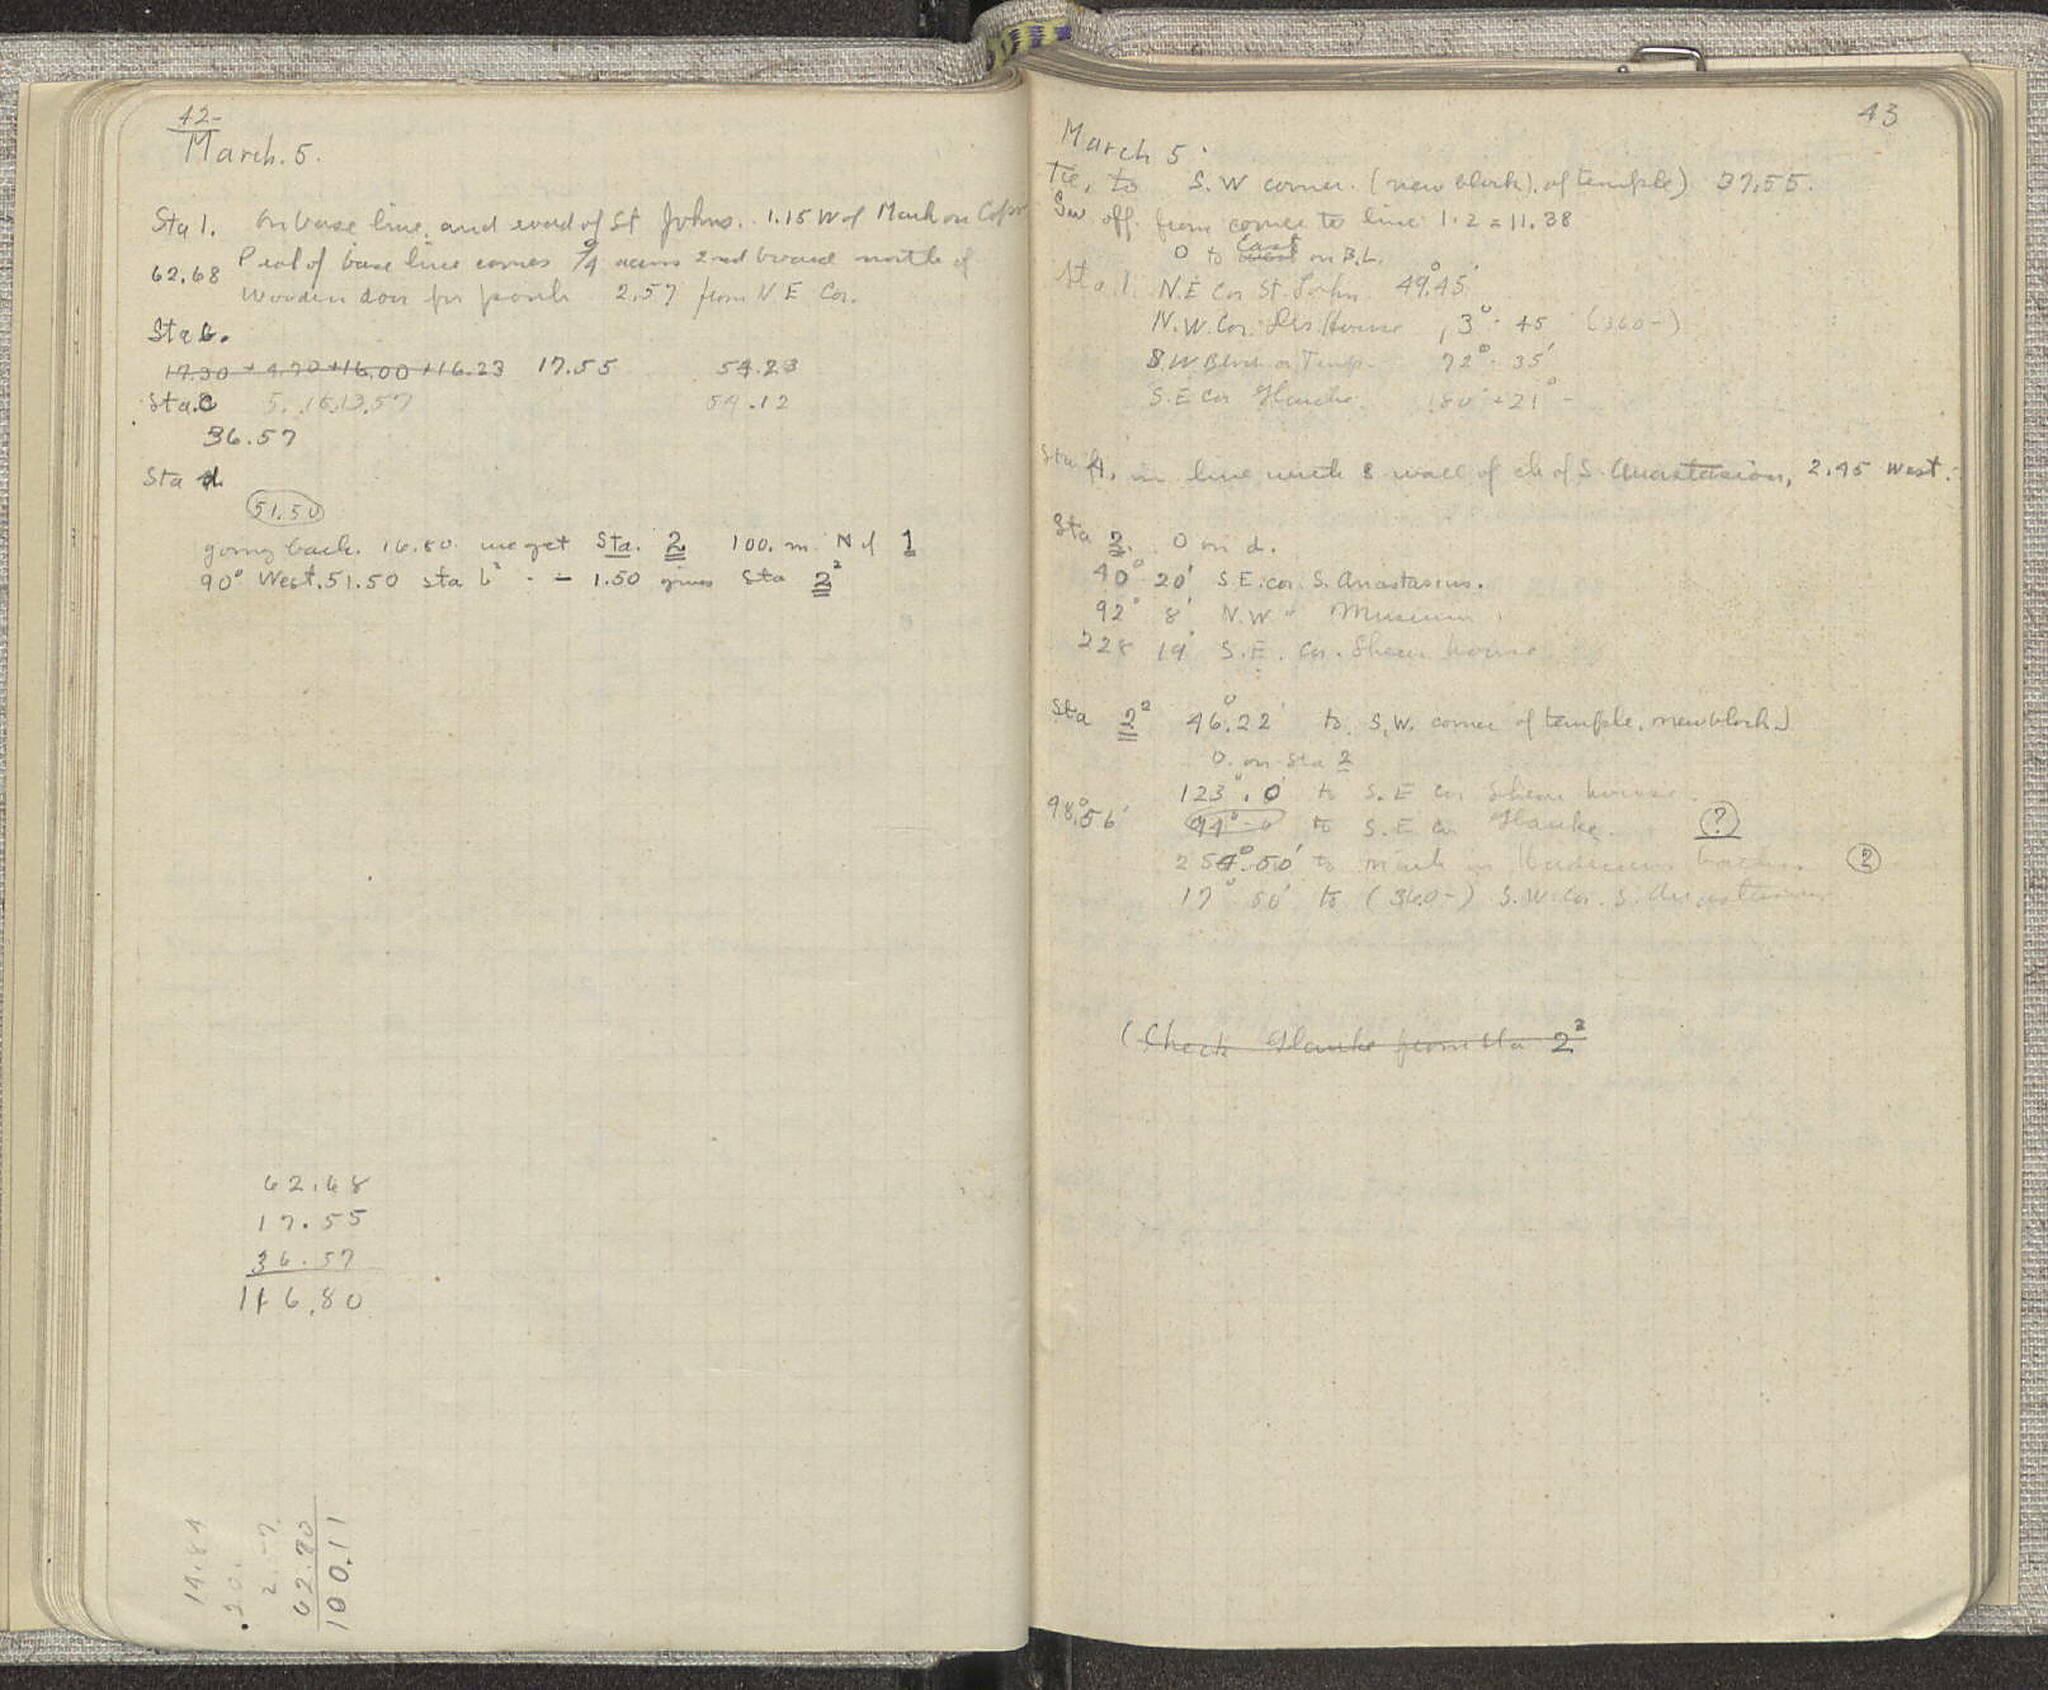 42
March. 5.
Sta 1. On base line, and road of St Johns. 1.15 W of Mark on
62.68 of base line comes 2nd board north of
Wooden door for porch 2.57 from N E Cor.
Sta b.
17.30 + 4.70 + 16.00 + 16.23 17.55 54.23
Sta. C 54.12
36.57
Sta d
51.50
going back. 16.80. we get Sta. 2 100. m. N of 1
90° West. 51.50 sta b² - - 1.50 gives Sta 2²
62.68
17.55
36.57
116.80
14.84
.20.
62.80
100.11
43
March 5
Tie, to S. W corner. (new block). of temple) 37.55.
off. from corner to line 1.2 = 11.38
0 to East on B.L.
Sta. 1. N.E Cor St. John 49°.45'
N.W. Cor. House 3°. 45 (360-)
S.W. on Temp. 72°. 35'
S.E Cor Glauke. 180 + 21° -
Sta A, in line with S wall of ch of S. Anastasion, 2.45 West.
Sta 2. 0 on d.
40° 20' S.E. cor. S. Anastasius.
92° 8' N.W " Museum
228 19' S.E. Cor. Shear house
Sta 2² 46°.22' to S.W. corner of temple. new block)
0. on sta 2
123°. 0' to S.E Cor Shear house.
98°.56' 94° - 0 to S.E Cor Glauke. (?)
254°.50' to mark in
17° 50' to (360-) S.W. Cor. S. Anastasius
(Check Glauke from Sta 2²